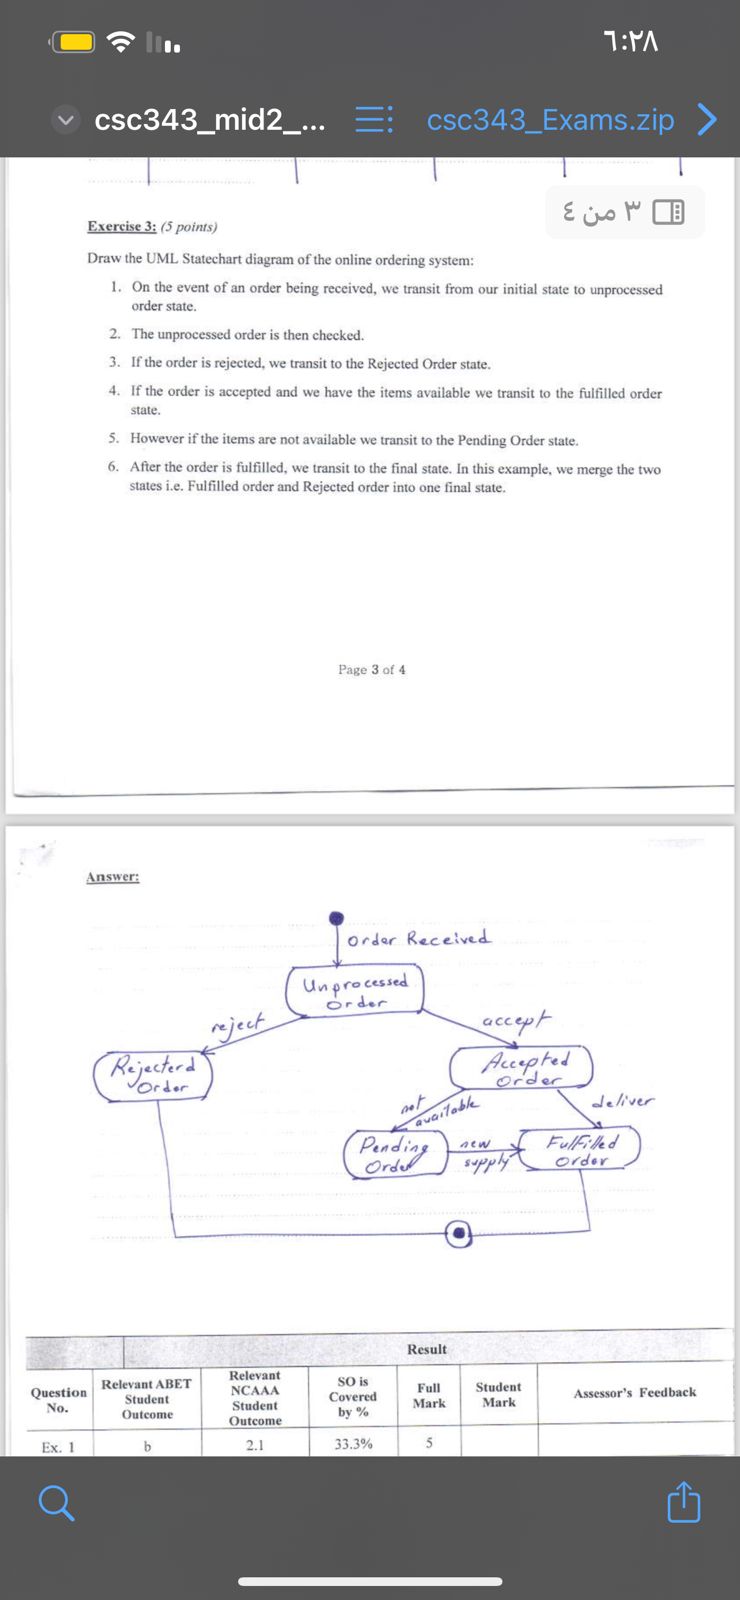 ٦:٢٨
csc343_mid2_...
csc343_Exams.zip
٣ من ٤
Exercise 3: (5 points)
Draw the UML Statechart diagram of the online ordering system:
1. On the event of an order being received, we transit from our initial state to unprocessed
order state.
2. The unprocessed order is then checked.
3. If the order is rejected, we transit to the Rejected Order state.
4. If the order is accepted and we have the items available we transit to the fulfilled order
state.
5. However if the items are not available we transit to the Pending Order state.
6. After the order is fulfilled, we transit to the final state. In this example, we merge the two
states i.e. Fulfilled order and Rejected order into one final state.
Page 3 of 4
Answer:
Order Received
Unprocessed
Order
reject
accept
Rejecterd
Order
Accepted
Order
not
available
deliver
Pending
Order
new
supply
FulFilled
Order
Result
Question
No.
Relevant ABET
Student
Outcome
Relevant
NCAAA
Student
Outcome
SO is
Covered
by %
Full
Mark
Student
Mark
Assessor's Feedback
Ex. 1
b
2.1
33.3%
5